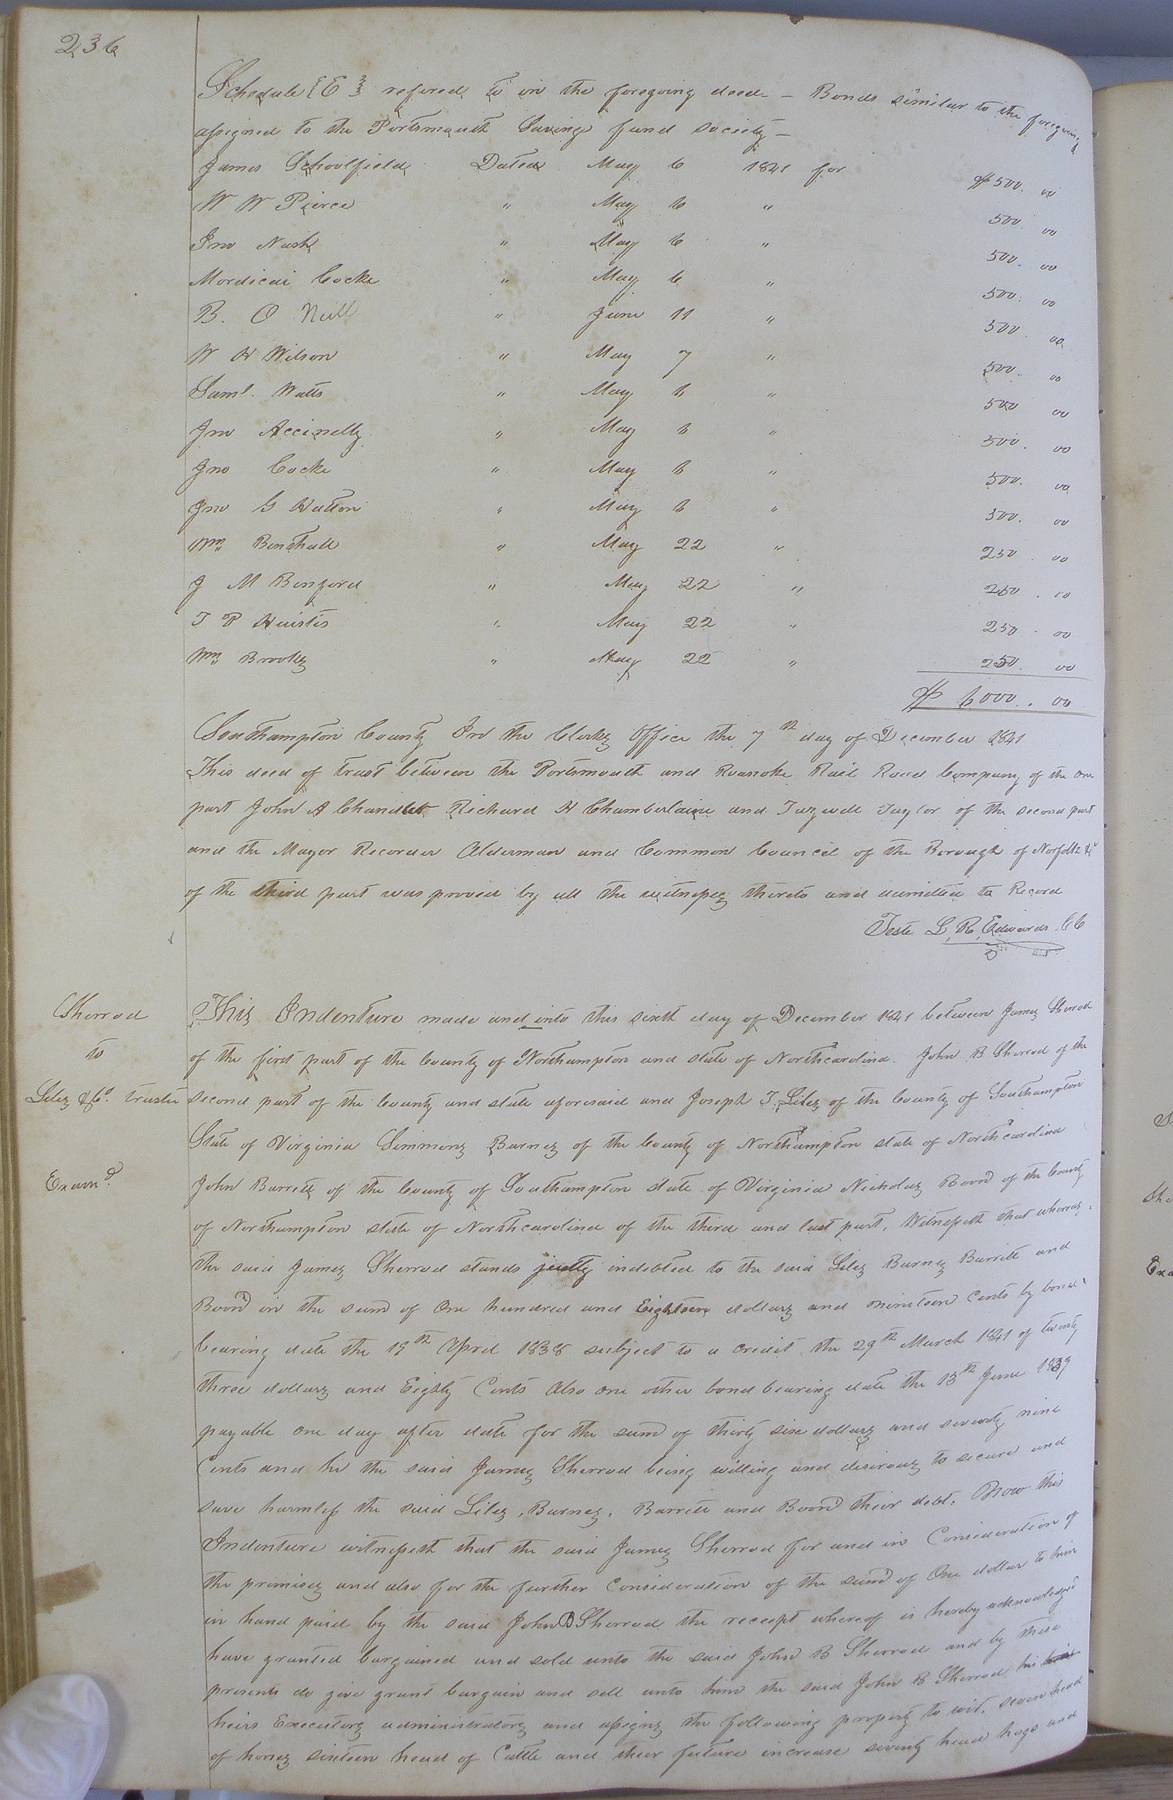 236
Schedule {E} refered to in the foregoing deed - Bonds similar to the foregoing
assigned to the Portsmouth Saving fund society -
James Schoolfield Dated May 6 1841 for $500. 00
W W Pierce " May 6 " 500. 00
Jno Nash " May 6 " 500. 00
Mordicai Cocke " May 6 " 500. 00
B. O Neill " June 11 " 500. 00
W H Wilson " May 7 " 500. 00
Saml. Watts " May 6 " 500 00
Jno Accinelly " May 6 " 500. 00
Jno Cocke " May 6 " 500. 00
Jno G Hatton " May 6 " 500. 00
Wm Benthall " May 22 " 250 00
J M Binford " May 22 " 250 . 00
T P " May 22 " 250 . 00
Wm Brooks " May 22 " 250. 00
$ 6000 . 00
Southampton County In the Clerks Office the 7th day of December 1841
This deed of trust between the Portsmouth and Roanoke Rail Road Company of the one
part John A Chandler Richard H Chamberlaine and Tazewell Taylor of the second part
and the Mayor Recorder Alderman and Common Council of the Borough of Norfolk &c
of the third part was proved by all the witnesses thereto and admitted to Record
Teste L. R. Edwards CC
Sherrod
to
Liles &Co. trustee
Examd.
This Indenture made and into this sixth day of December 1841 between James Sherod
of the first part of the County of Northampton and state of Northcarolina. John B Sherrod of the
second part of the County and state aforesaid and Joseph T. Liles of the County of Southampton
State of Virginia Simmons Barnes of the County of Northampton state of Northcarolina
John Barrett of the County of Southampton state of Virginia Nicholas Boon of the County
of Northampton state of Northcarolina of the third and last part. Witnesseth that whereas
the said James Sherrod stands justly indebted to the said Liles Barnes Barrett and
Boon in the sum of One hundred and Eighteen dollars and nineteen Cents by bond
bearing date the 19th April 1838 subject to a credit the 29th March 1841 of twenty
three dollars and Eighty Cents also one other bond bearing date the 13th June 1839
payable one day after date for the sum of thirty six dollars and seventy nine
Cents and he the said James Sherrod being willing and desirous to secure and
save harmless the said Liles, Barnes, Barrett and Boon their debt. Now this
Indenture witnesseth that the said James Sherrod for and in Consideration of
the premises and also for the further Consideration of the sum of One dollar to him
in hand paid by the said John B Sherrod the receipt whereof is hereby acknowledged
have granted bargained and sold unto the said John B Sherrod and by these
presents do give grant bargain and sell unto him the said John B Sherrod his
heirs Executors administrators and assigns the following property to wit. seven head
of horses sixteen head of Cattle and their future increase seventy head hogs and